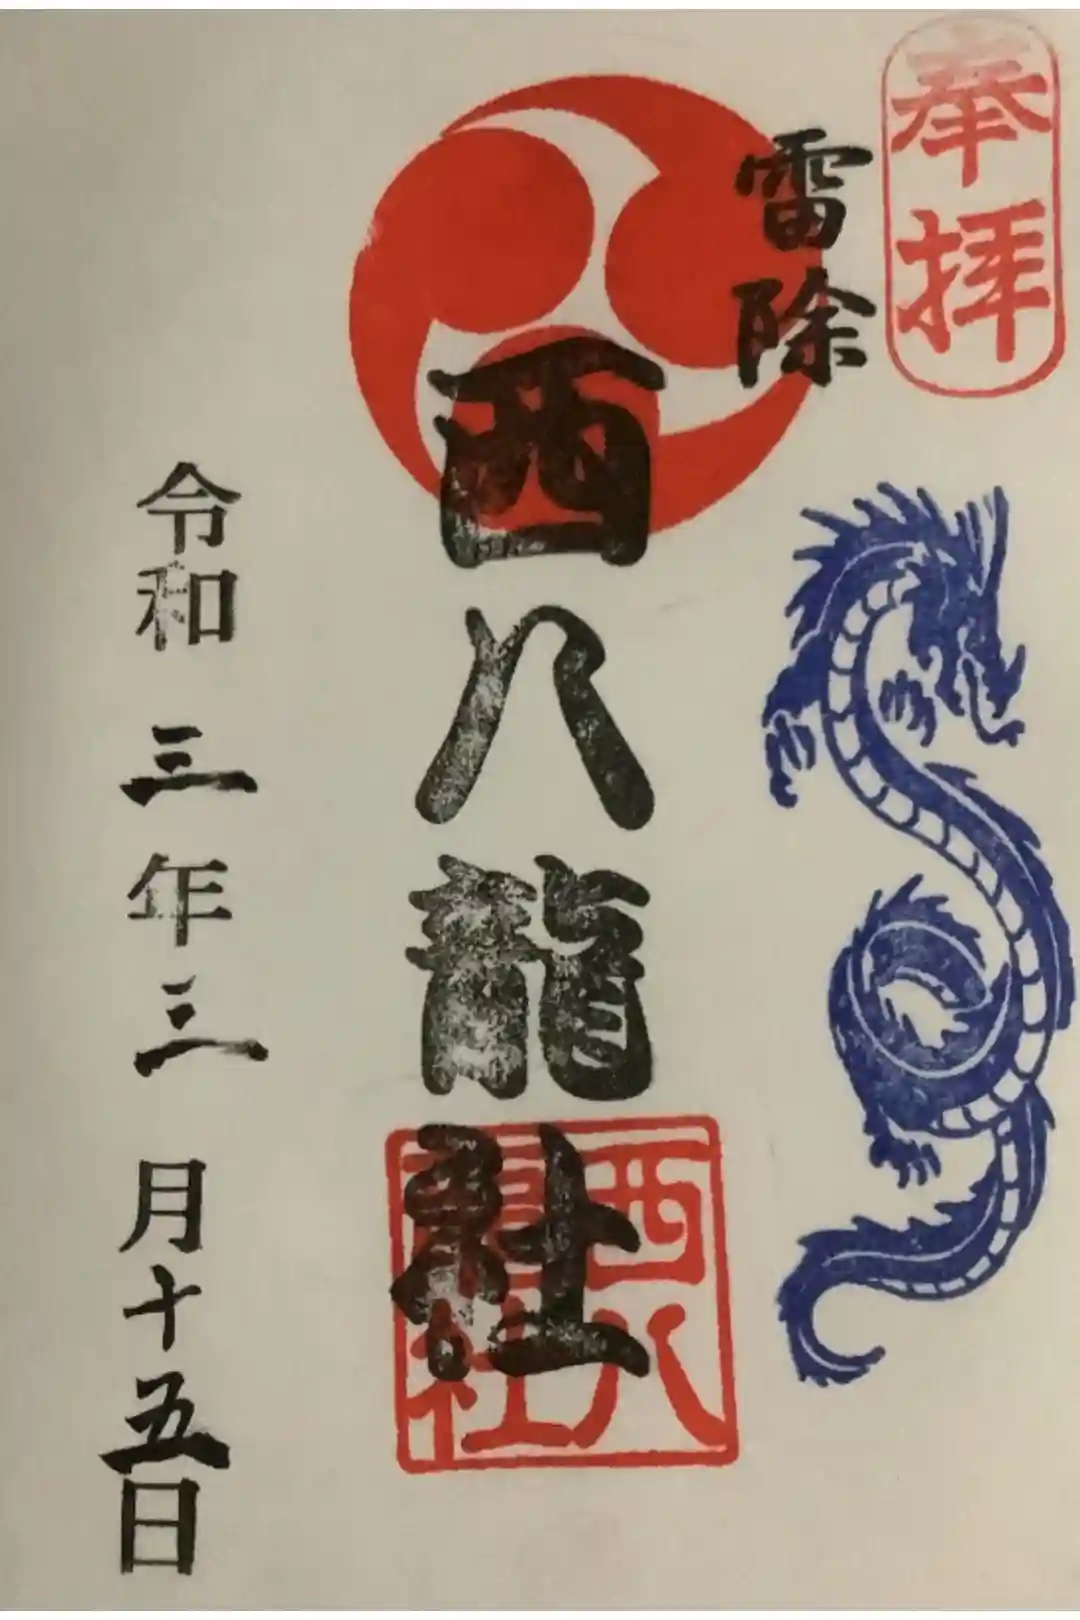 奉拝
雷除
西八龍社
西八
龍社
令和三年三月十五日